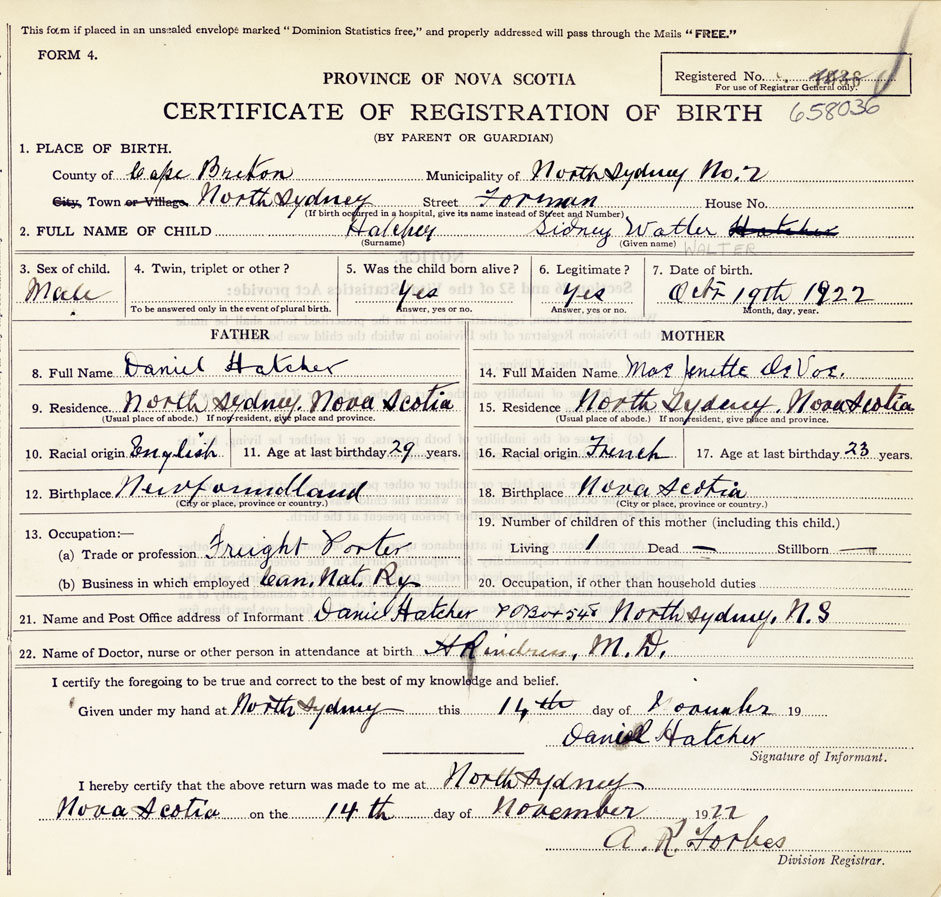 This form if placed in an unsealed envelope marked "Dominion Statistics free," and properly addressed will pass through the Mails "FREE."
FORM 4.
Registered No.
For use of Registrar General only.
658036
PROVINCE OF NOVA SCOTIA
CERTIFICATE OF REGISTRATION OF BIRTH
(BY PARENT OR GUARDIAN)
1. PLACE OF BIRTH.
County of Cape Breton Municipality of North Sydney No. 2
City, Town or Village North Sydney Street Forman House No.
(If birth occurred in a hospital, give its name instead of Street and Number)
2. FULL NAME OF CHILD Hatcher Sidney Watler Hatcher
(Surname) (Given name) WALTER
3. Sex of child. 4. Twin, triplet or other? 5. Was the child born alive? 6. Legitimate? 7. Date of birth.
Male Yes Yes Oct 19th 1922
To be answered only in the event of plural birth. Answer, yes or no. Answer, yes or no. Month, day, year.
FATHER MOTHER
8. Full Name Daniel Hatcher 14. Full Maiden Name Mae Jenette DeVoe.
9. Residence North Sydney. Nova Scotia 15. Residence North Sydney. Nova Scotia
(Usual place of abode.) If nonresident, give place and province. (Usual place of abode.) If nonresident, give place and province.
10. Racial origin English 11. Age at last birthday 29 years. 16. Racial origin French 17. Age at last birthday 23 years.
12. Birthplace Newfoundland 18. Birthplace Nova Scotia
(City or place, province or country.) (City or place, province or country.)
13. Occupation:— 19. Number of children of this mother (including this child.)
(a) Trade or profession Frught Porter Living 1 Dead — Stillborn —
(b) Business in which employed Can. Nat. Ry 20. Occupation, if other than household duties
21. Name and Post Office address of Informant Daniel Hatcher P O Box 548 North Sydney, N.S
22. Name of Doctor, nurse or other person in attendance at birth M.D.
I certify the foregoing to be true and correct to the best of my knowledge and belief.
Given under my hand at North Sydney this 14th day of November 19
Daniel Hatcher
Signature of Informant.
I hereby certify that the above return was made to me at North Sydney
Nova Scotia on the 14th day of November 1922
A. R. Forbes
Division Registrar.